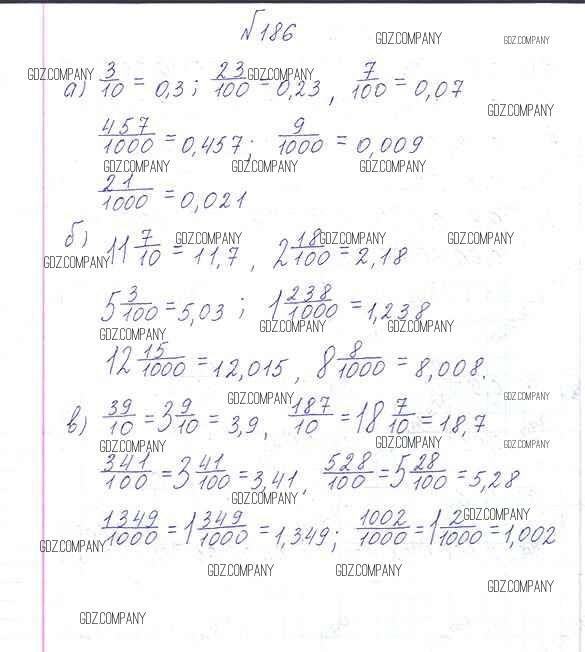 №186
GDZ.COMPANY GDZ.COMPANY
GDZ.COMPANY GDZ.COMPANY
а) 3/10 = 0,3; 23/100 = 0,23, 7/100 = 0,07
GDZ.COMPANY
457/1000 = 0,457; 9/1000 = 0,009
GDZ.COMPANY GDZ.COMPANY GDZ.COMPANY
21/1000 = 0,021
б) 11 7/10 = 11,7, 2 18/100 = 2,18
GDZ.COMPANY GDZ.COMPANY GDZ.COMPANY GDZ.COMPANY
5 3/100 = 5,03; 1 238/1000 = 1,238
GDZ.COMPANY GDZ.COMPANY GDZ.COMPANY
12 15/1000 = 12,015, 8 8/1000 = 8,008.
GDZ.COMPANY GDZ.COMPANY
в) 39/10 = 3 9/10 = 3,9, 187/10 = 18 7/10 = 18,7
GDZ.COMPANY GDZ.COMPANY GDZ.COMPANY
341/100 = 3 41/100 = 3,41, 528/100 = 5 28/100 = 5,28
GDZ.COMPANY GDZ.COMPANY
1349/1000 = 1 349/1000 = 1,349; 1002/1000 = 1 2/1000 = 1,002
GDZ.COMPANY
GDZ.COMPANY GDZ.COMPANY
GDZ.COMPANY
GDZ.COMPANY